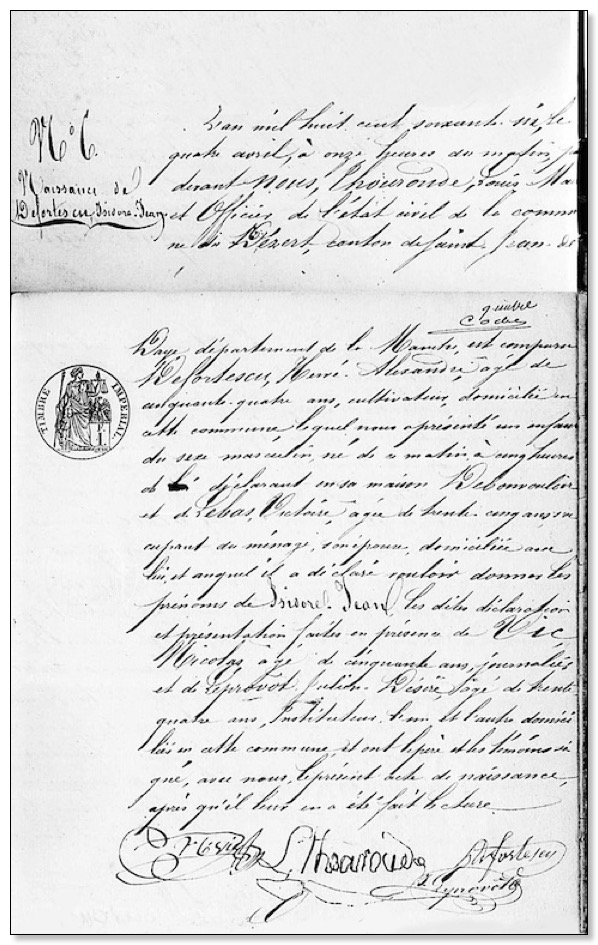 N° 6.
Naissance de
Defortescu, Isidore Jean
L'an mil huit cent soixante six, le
quatre avril, à onze heures du matin, p
devant Nous, Thouroude, Louis Mai
et Officier de l'état civil de la commu
ne du Dézert, canton de Saint Jean de
quatre
Daye département de la Manche, est comparu
Defortescu, Alexandre, agé de
cinquante-quatre ans, cultivateur, domicilié en
cette commune lequel nous a présenté un enfant
du sexe masculin, né de ce matin, à cinq heures
de déclarant en sa maison
et de Lebas, Victoire, agée de trente-cinq ans, oc
cupant du ménage, son épouse, domiciliée avec
lui, et auquel il a déclaré vouloir donner les
prénoms de Isidore Jean, les dites déclaration
et présentation faites en présence de Vic
Nicolas, agé de cinquante ans, journalier
et de Leprovost Julien-Désiré, agé de trente-
quatre ans, Instituteur, l'un et l'autre domici
liés en cette commune, et ont le père et les témoins si
gné, avec nous, le présent acte de naissance,
après qu'il leur en a été fait lecture.
TIMBRE IMPÉRIAL
L. Thouroude Defortescu
Leprovost